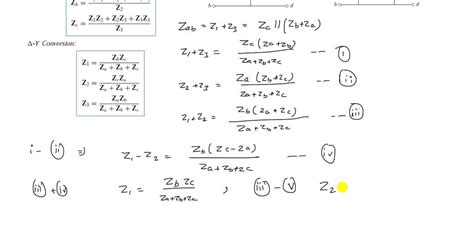 Z_b = 
Z_c = (Z_1Z_2 + Z_2Z_3 + Z_3Z_1) / Z_3
b d b d
Z_ab = Z_1 + Z_3 = Z_c || (Z_b + Z_a)
Δ-Y Conversion:
Z_1 = Z_bZ_c / (Z_a + Z_b + Z_c)
Z_2 = Z_cZ_a / (Z_a + Z_b + Z_c)
Z_3 = Z_aZ_b / (Z_a + Z_b + Z_c)
Z_1 + Z_3 = Z_c (Z_a + Z_b) / (Z_a + Z_b + Z_c) --- i
Z_2 + Z_3 = Z_a (Z_b + Z_c) / (Z_a + Z_b + Z_c) --- ii
Z_1 + Z_2 = Z_b (Z_a + Z_c) / (Z_a + Z_b + Z_c) --- iii
i - ii ⇒ Z_1 - Z_2 = Z_b (Z_c - Z_a) / (Z_a + Z_b + Z_c) --- iv
iii + iv Z_1 = Z_b Z_c / (Z_a + Z_b + Z_c) , iii - v Z_2